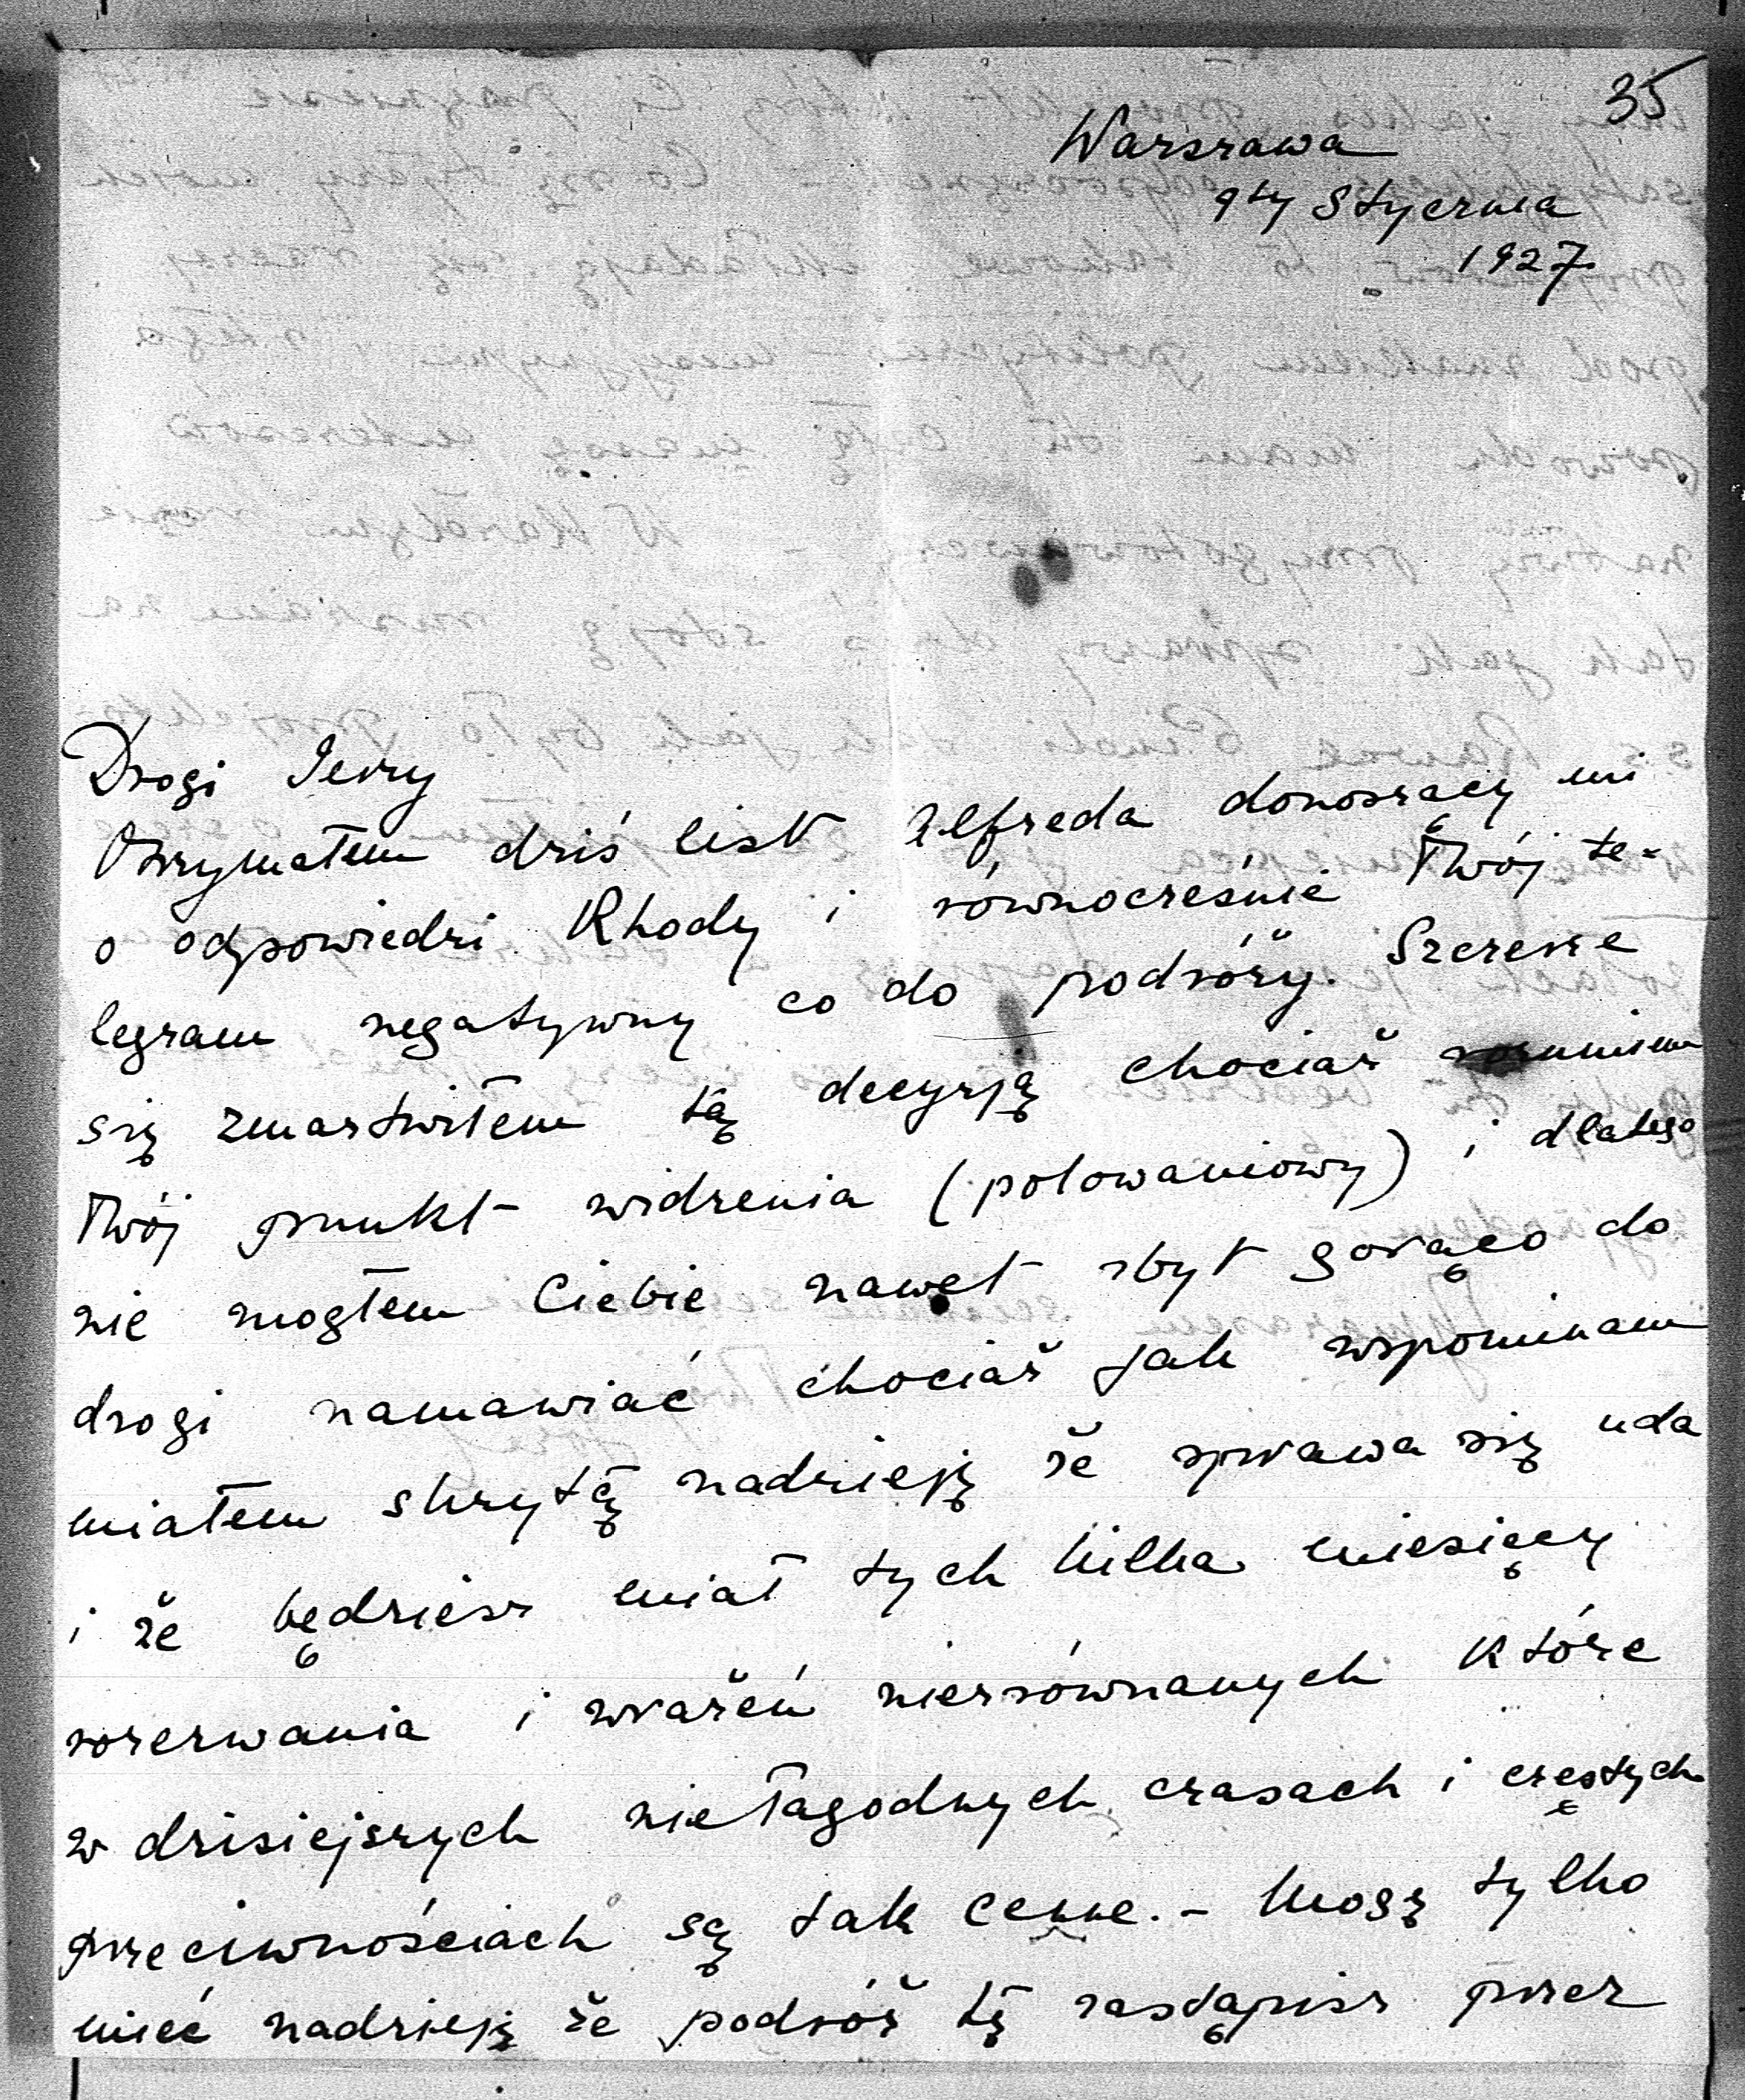 35
Warszawa
9ty Stycznia
1927.
Drogi Jerzy
Otrzymałem dziś list Alfreda donoszący mi
o odpowiedzi Rhody i równocześnie Twój te-
legram negatywny co do podróży. Szczerze
się zmartwiłem tą decyzją chociaż rozumiem
Twój punkt widzenia (polowaniowy) i dlatego
nie mogłem Ciebie nawet zbyt gorąco do
drogi namawiać chociaż jak wspominam
miałem skrytą nadzieję że sprawa się uda
i że będziesz miał tych kilka miesięcy
rozerwania i wrażeń niezrównanych które
w dzisiejszych niełagodnych czasach i częstych
przeciwnościach są tak cenne. - Mogę tylko
mieć nadzieję że podróż tę zastąpisz przez